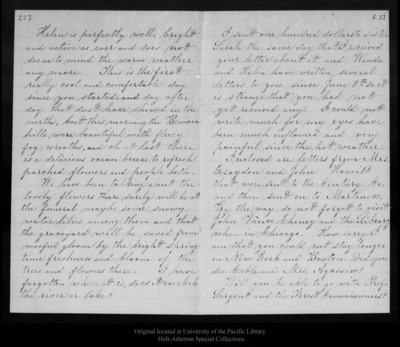 [2]
Helen is perfectly well, bright
and active as ever and does not
seem to mind the warm weather
any more. This is the first
really cool and comfortable day
since you started, and day after
day that dust haze showed in the
north, but this morning the Benicia
hills were beautiful with fleecy
fog wreaths, and oh at last there
is a delicious ocean breeze to refresh
parched flowers and people both.
We have been talking about the
lovely flowers there surely will be at
the funeral, maybe some snowy
water lilies among them and that
the graveyard will be saved from
woeful gloom by the bright Spring
time freshness and bloom of the
trees and flowers there. I have
forgotten where it is, does it overlook
the river or lake?
[3]
I sent one hundred dollars to sister
Sarah the same day that I received
your letter about it and Wanda
and Helen have written several
letters to you since June 8th so it
is strange that you had not
yet received any. I could not
write much for my eyes have
been much inflamed and very
painful since the hot weather.
Enclosed are letters from Mrs.
Graydon and John Howitt
that were sent to the Century Co.
and then sent on to Martinez.
By the way do not forget to visit
John Vance Cheney and the Library
when in Chicago. How sorry I
am that you could not stay longer
in New York and Boston. Did you
see Cable and Mrs. Agassiz?
Will you be able to go with Prof.
Sargent and the Forest Commissioners?
Original located at University of the Pacific Library
Holt-Atherton Special Collections